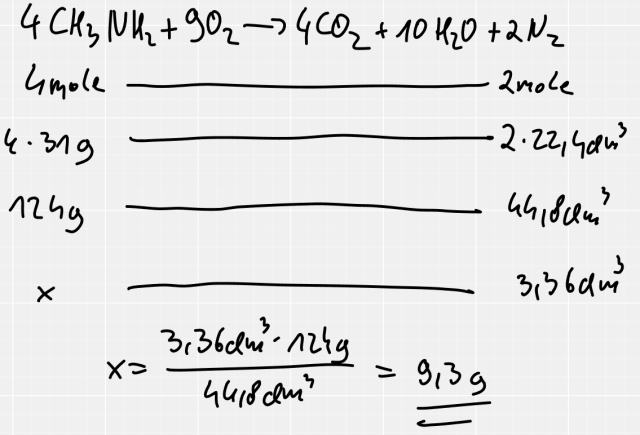 4CH₃NH₂ + 9O₂ → 4CO₂ + 10H₂O + 2N₂
4mole — 2mole
4·31g — 2·22,4dm³
124g — 44,8dm³
x — 3,36dm³
x = 3,36dm³·124g / 44,8dm³ = 9,3g